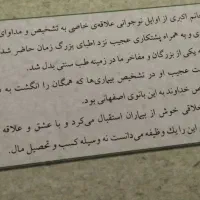 انم اکبری از اوایل نوجوانی علاقه‌ی خاصی به تشخیص و مداوای
ی و به همراه پشتکاری عجیب نزد اطبای بزرگ زمان حاضر شد
ه یکی از بزرگان و مفاخر ما در زمینه طب سنتی بدل شد.
ت عجیب او در تشخیص بیماری‌ها که همگان را انگشت به
ص خداوند به این بانوی اصفهانی بود.
خلاقی خوش از بیماران استقبال می‌کرد و با عشق و علاقه
این را یک وظیفه می‌دانست نه وسیله کسب و تحصیل مال.